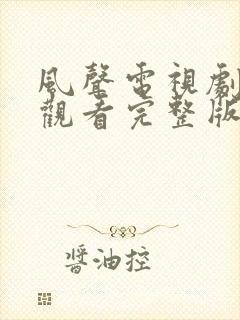 風聲電視劇
觀看完整版
醬油控